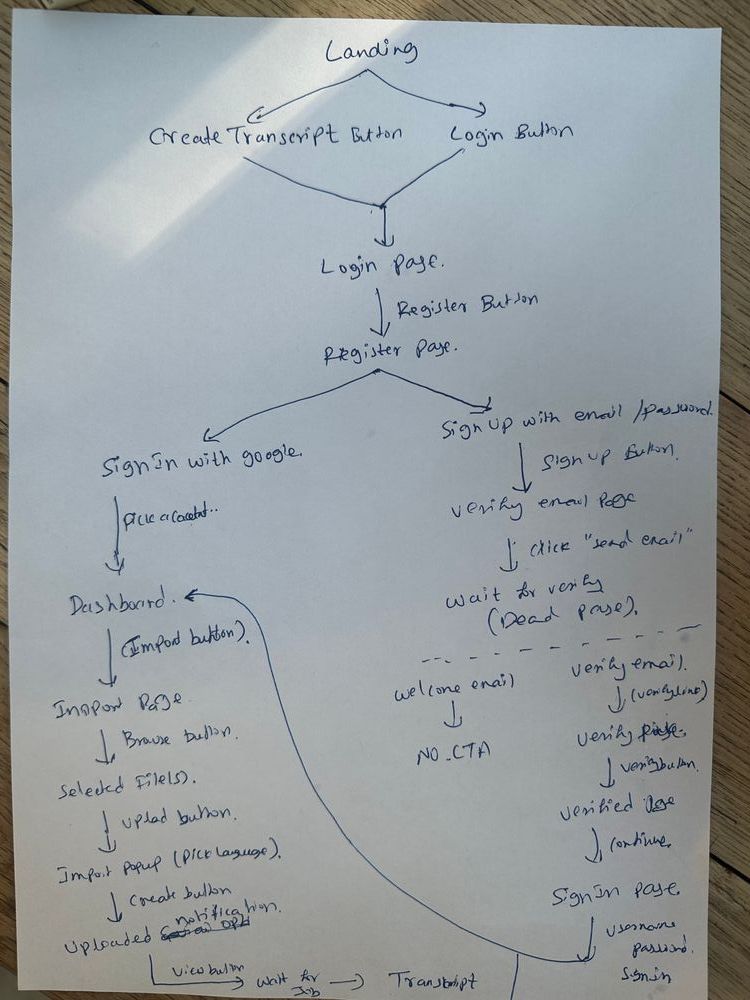 Landing
Create Transcript Button
Login Button
Login page.
Register Button
Register page.
SignIn with google.
Sign Up with email /password.
Sign up Button.
Pick a
verify email Page
click "send email"
Dashboard.
wait for verify
(Dead page).
(Import button).
welcome email
verify email.
(verify link)
Import Page
NO_CTA
verify
Browse button.
verify button.
Selected File(s).
verified Page
Upload button.
continue.
Import popup (Pick language).
SignIn page.
Create button
notification.
Uploaded
Username
password.
SignIn
View button
wait for
Job
Transcript